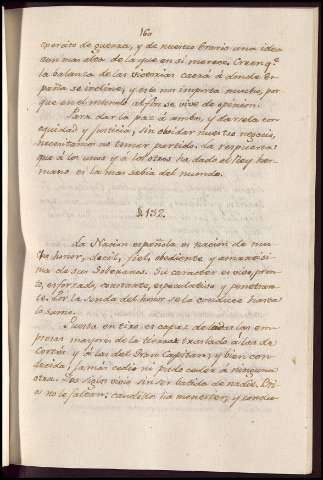 160
operacion de guerra, y de nuestro Erario una idea
aun mas alta de la que en si merece. Creen q.e
la balanza de las victorias caerá á donde Es-
paña se incline, y esto nos importa mucho, por
que en el mundo al fin se vive de opinion.
Para dar la paz á ambos, y darsela con
equidad y justicia, sin olvidar nuestro negocio,
necesitamos no tomar partido. La respuesta
que á los unos y á los otros ha dado el Rey her-
mano es la mas sabia del mundo.
§ 132.
La Nacion española es nacion de mu-
cho honor, docil, fiel, obediente y amantisi-
ma de sus Soberanos. Su caracter es vivo, pron-
to, esforzado, constante, especulativo y penetran-
te. Por la senda del honor se la conduce hasta
lo sumo.
Puesta en tiro es capaz de todas las em-
presas mayores de la tierra: traslado á las de
Cortés y á las del Gran Capitan; y bien con-
ducida, jamás cedió ni pudo ceder á ninguna
otra. Dos siglos vivió sin ser batida de nadie. Bri-
os no le faltan: caudillo ha menester, y condu-